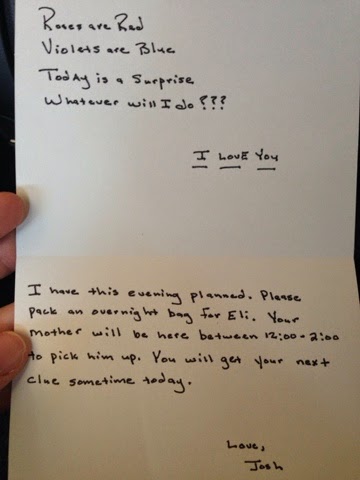 Roses are Red
Violets are Blue
Today is a Surprise
Whatever will I do???
I LOVE YOU
I have this evening planned. Please
pack an overnight bag for Eli. Your
mother will be here between 12:00-2:00
to pick him up. You will get your next
clue sometime today.
Love,
Josh